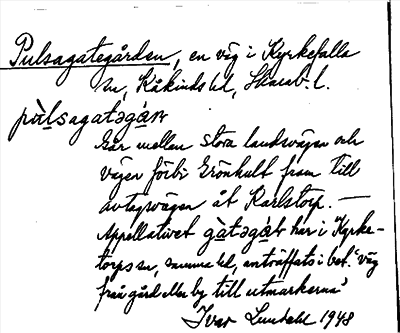 Pulsagategården, en väg i Kyrkefalla
sn, Kåkinds hd, Skarab. l.
pùlsagatəgá̀ṛṇ
Går mellan stora landsvägen och
vägen förbi Grönhult fram till
avtagsvägen åt Karlstorp. —
Appellativet gàtəgá̀ḷ har i Kyrke-
torps sn, samma hd, anträffats i bet. "väg
från gård eller by till utmarkerna"
Ivar Lundahl 1948